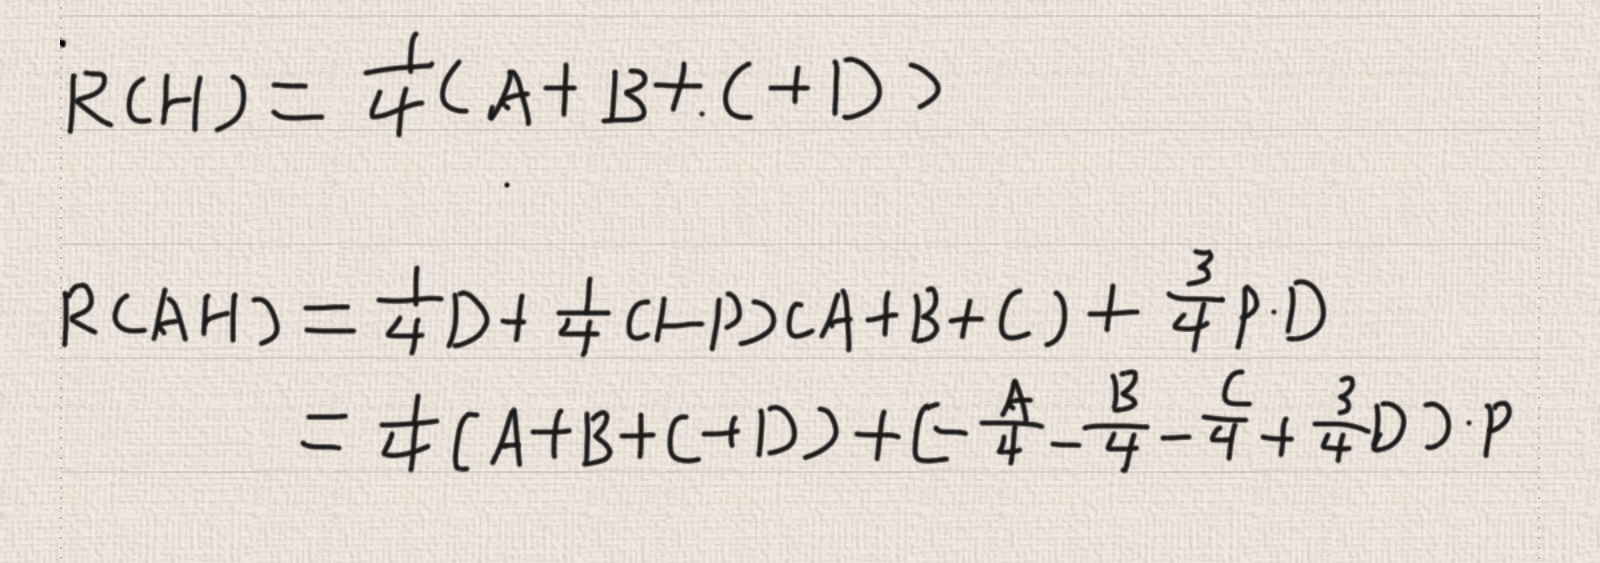 R(H) = 1/4 (A + B + C + D)
R(AH) = 1/4 D + 1/4 (1-P)(A+B+C) + 3/4 P·D
= 1/4 (A+B+C+D) + (- A/4 - B/4 - C/4 + 3/4 D)·P